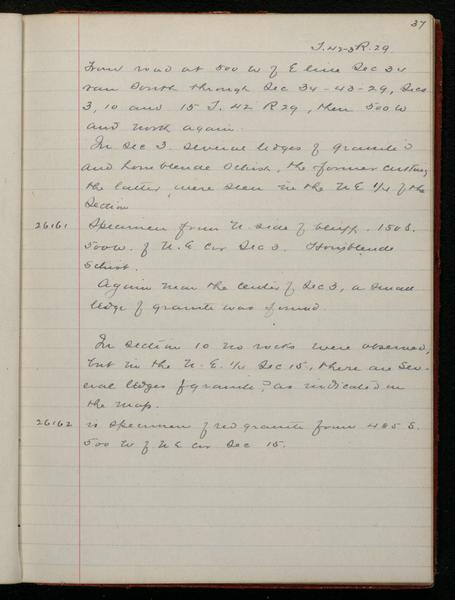 37
T. 42-3 R. 29
From road at 500 W of E line Sec 34
ran South through Sec 34-43-29, Secs
3, 10 and 15 T. 42 R 29, then 500 W
and North again.
In Sec 3. several ledges of granite
and hornblende schist, the former cutting
the latter, were seen in the N.E. 1/4 of the
Section
26161 Specimen from N. side of bluff. 150 S.
500 W. of N.E cor Sec 3. Hornblende
Schist.
Again near the center of Sec 3, a small
ledge of granite was found.
In Section 10 no rocks were observed,
but in the N.E. 1/4 Sec 15, there are sev-
eral ledges of granite? as indicated on
the map.
26162 is specimen of red granite from 485 S.
500 W of N E cor Sec 15.